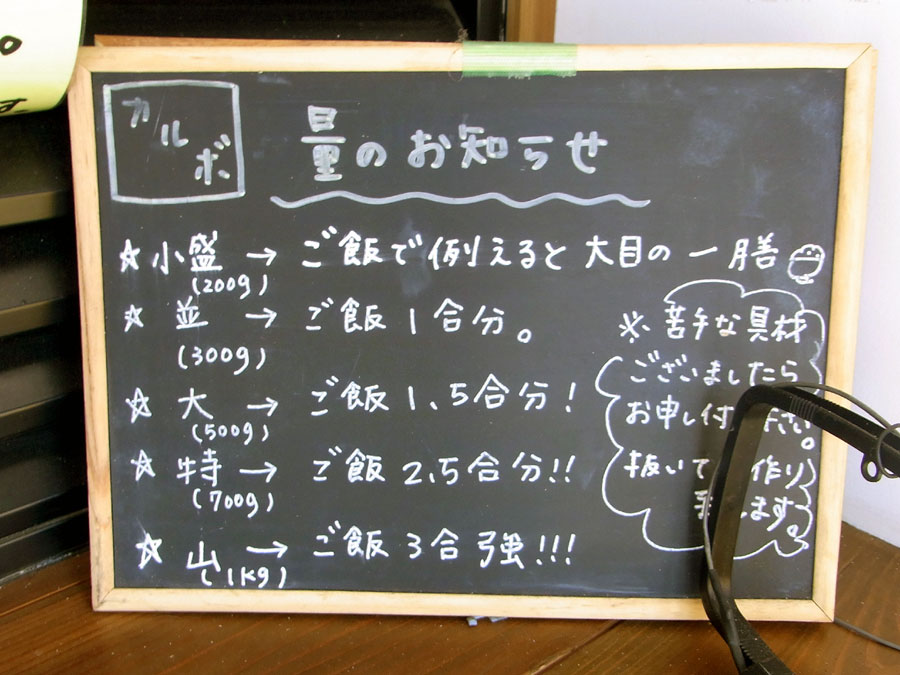 カルボ
量のお知らせ
☆小盛 → ご飯で例えると大目の一膳
(200g)
☆並 → ご飯1合分。
(300g)
☆大 → ご飯1.5合分!
(500g)
☆特 → ご飯2.5合分!!
(700g)
☆山 → ご飯3合強!!!
(1kg)
※苦手な具材
ございましたら
お申し付 下さい。
抜いて 作り
します。